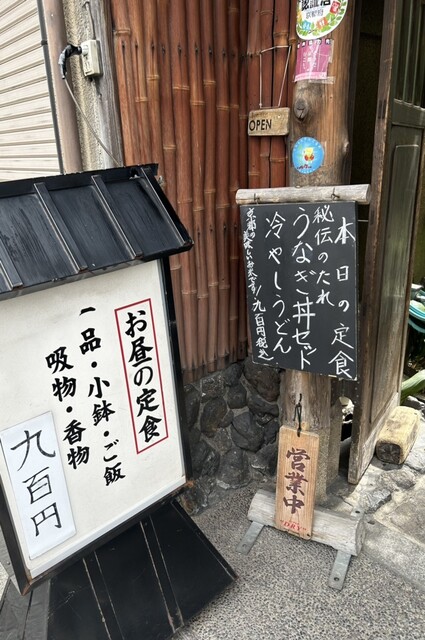 認証店
京都府
OPEN
本日の定食
秘伝のたれ
うなぎ丼セット
冷やしうどん
九百円税込
お昼の定食
一品・小鉢・ご飯
吸物・香物
九百円
営業中
"DRY"